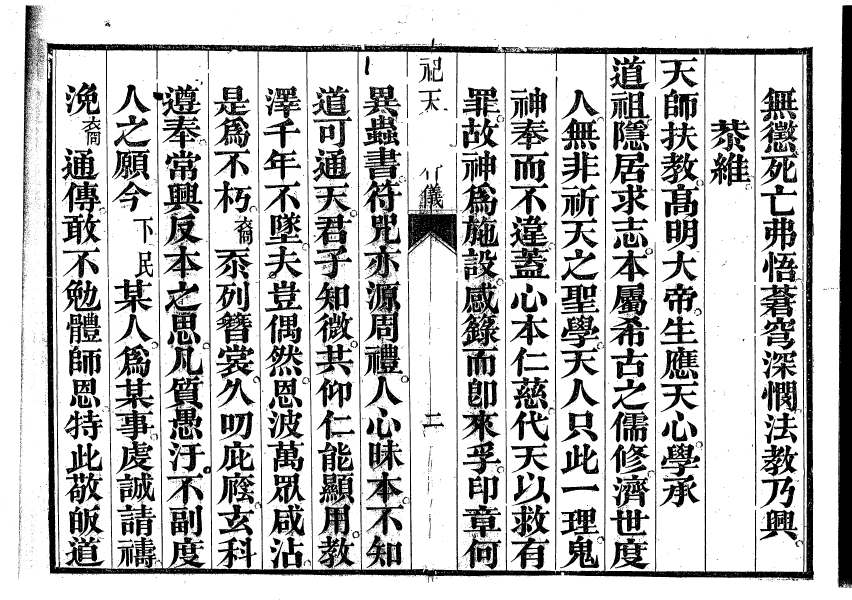 無懲死亡弗悟蒼穹深憫法教乃興
恭維
天師扶教高明大帝生應天心學承
道祖隱居求志本屬希古之儒修濟世度
人無非祈天之聖學天人只此一理鬼
神奉而不違蓋心本仁慈代天以救有
罪故神為施設感錄而卽來孚印章何
祀天 行儀 二
異蟲書符咒亦源周禮人心昧本不知
道可通天君子知微共仰仁能顯用教
澤千年不墜夫豈偶然恩波萬眾咸沾
是為不朽裔忝列簪裳久叨庇廕玄科
遵奉常興反本之思凡質愚汙不副度
人之願今下民某人為某事虔誠請禱
浼裔通傳敢不勉體師恩特此敬皈道